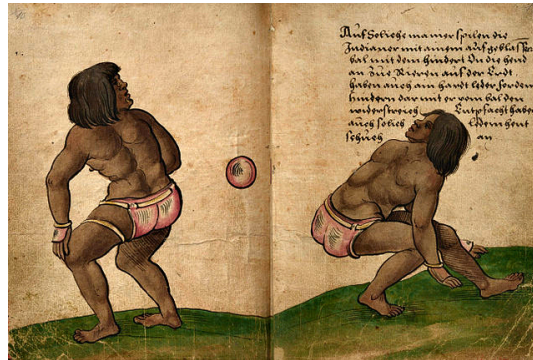 Auf Soliche manier spilen die
Indianer mit ainem aufgeblassne
bal mit dem hindert On die hend
an Zue Rieren auf der Erdt
haben auch ain hardt leder fordem
hindern dar mit er vom bal den
widerstreich Entpfacht haben
auch solich ledern hent
schuch an